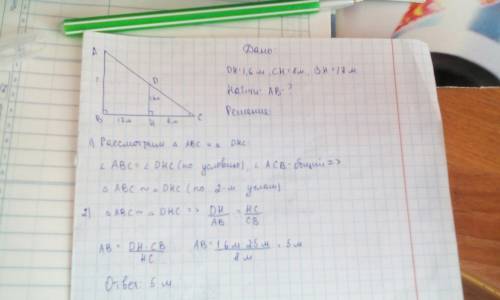 Дано
A
DH=1,6 м, CH=8м, BH=17м
D
?
1,6м
Найти: AB-?
B 17м H 8м C
Решение
1) Рассмотрим △ ABC и △ DHC
∠ ABC = ∠ DHC (по условию), ∠ ACB-общий =>
△ ABC ~ △ DHC (по 2-м углам)
2) △ ABC ~ △ DHC => DH/AB = HC/CB
AB = DH·CB/HC AB = 1,6м·25м/8м = 5м
Ответ: 5 м